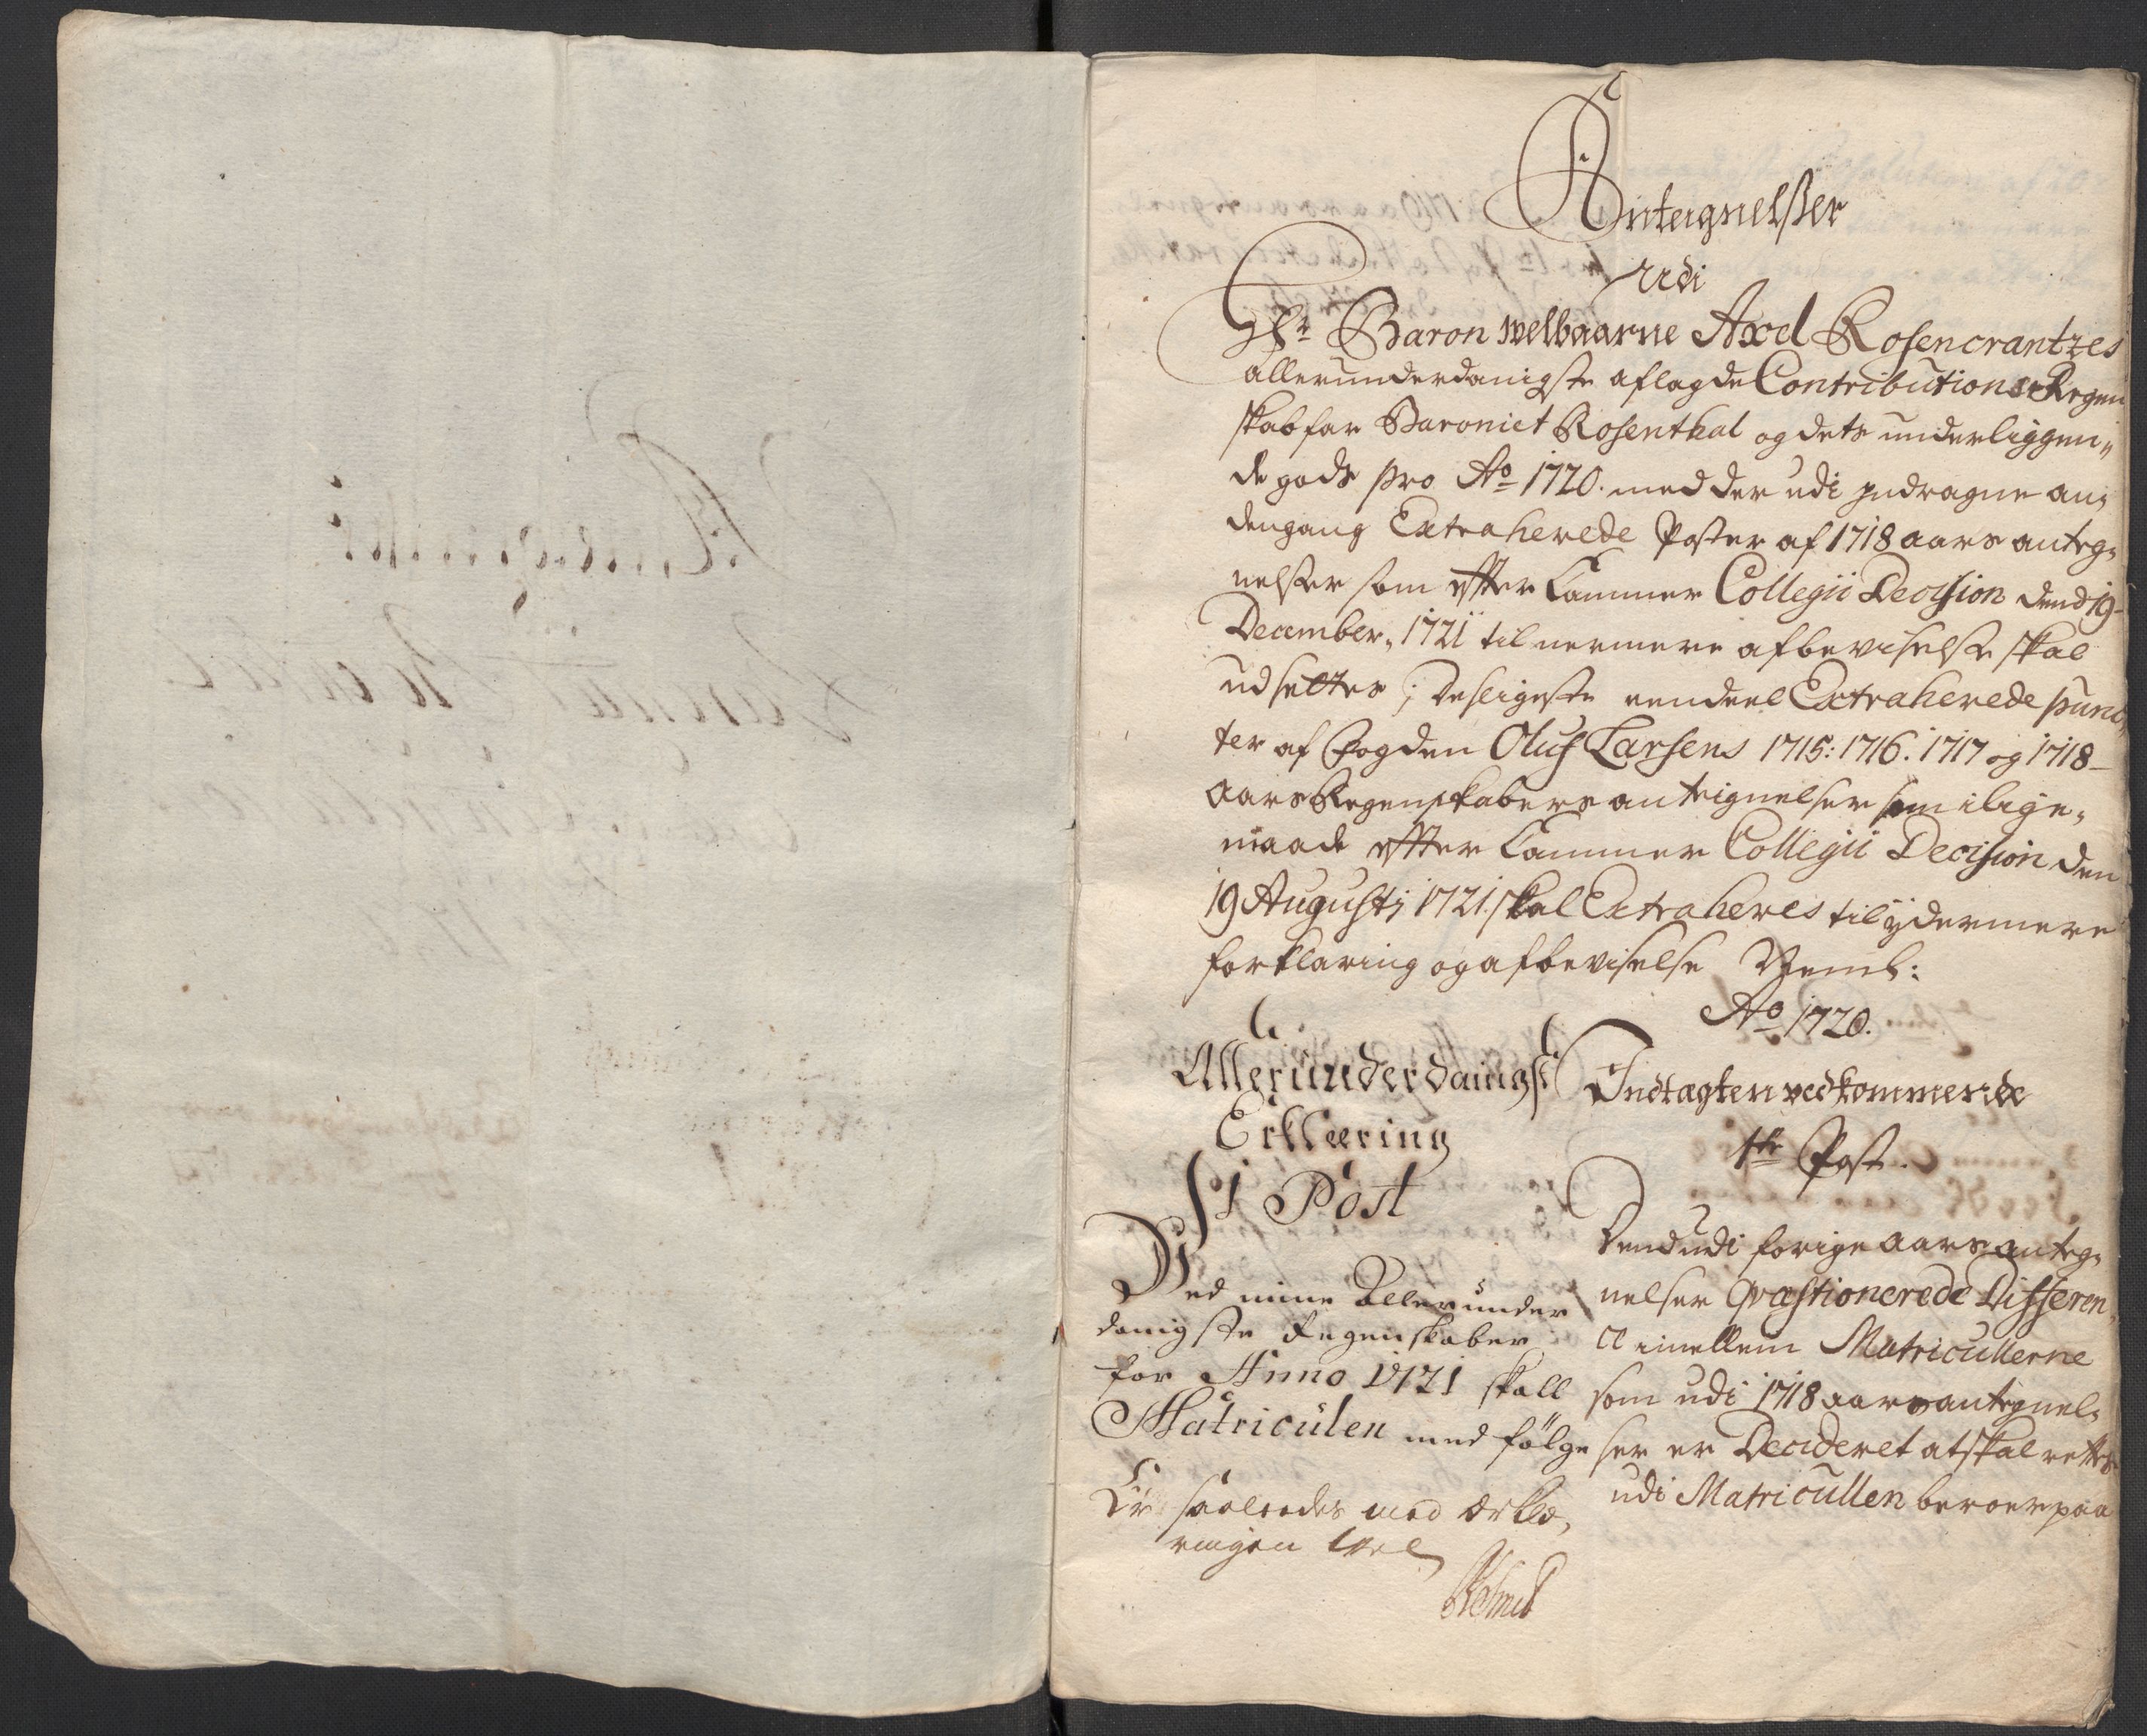 Antegnelsser
udi
Hr. Baron welbaarne Axel Rosencrantzes
allerunderdanigste aflagde Contributions Regen
skab for Baroniet Rosenthal og dets underliggen„
de gods pro Ao 1720. med der udi inddragne an„
dengang Extraherede Poster af 1718 aars anteg„
nelser som efter Cammer Collegii Decision dend 19
December„ 1721 til nermere afbeviselse skal
udsettes; desligeste eendeel Extraherede punc„
ter af Fogden Oluf Larsens 1715: 1716. 1717 og 1718
aars Regenskabers anteignelser som i lige„
maade efter Cammer Collegii Decision den
19 Augustj 1721. skal Extraheres til ydermere
forklaring og afbeviselse Neml:
Ao 1720.
Allerunderdanigst
Erklæring
1 Post
Ved mine Allerunder
danigste Regenskaber
for Anno 1721 skall
Matriculen med følge
Er saaledes med Erklæ„
ringen vel
Indtægten vedkommende
1te Post.
Dend udi forige aars anteg„
nelser Qvæstionerede Differen„
ce imellem Matricullerne
som udi 1718 aars antegnel„
ser er Decideret at skal rettes
udi Matricullen beroer paa